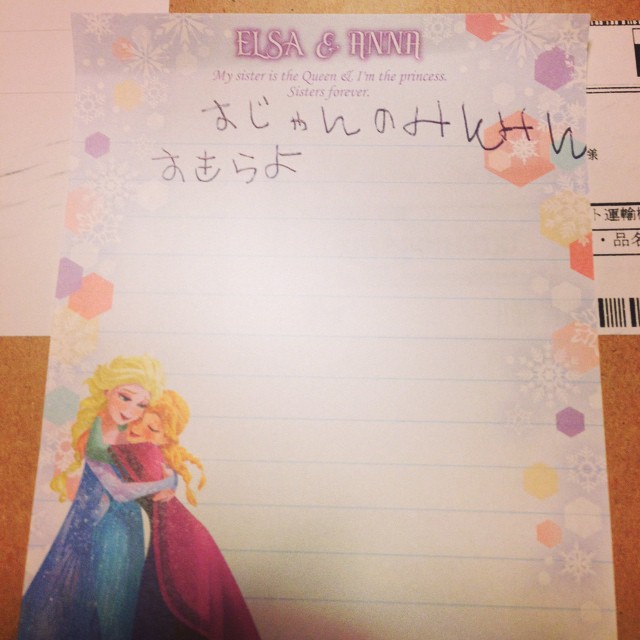 ELSA & ANNA
My sister is the Queen & I'm the princess.
Sisters forever.
おじゃんのみんみん
おもらよ
様
ト運輸
・品名